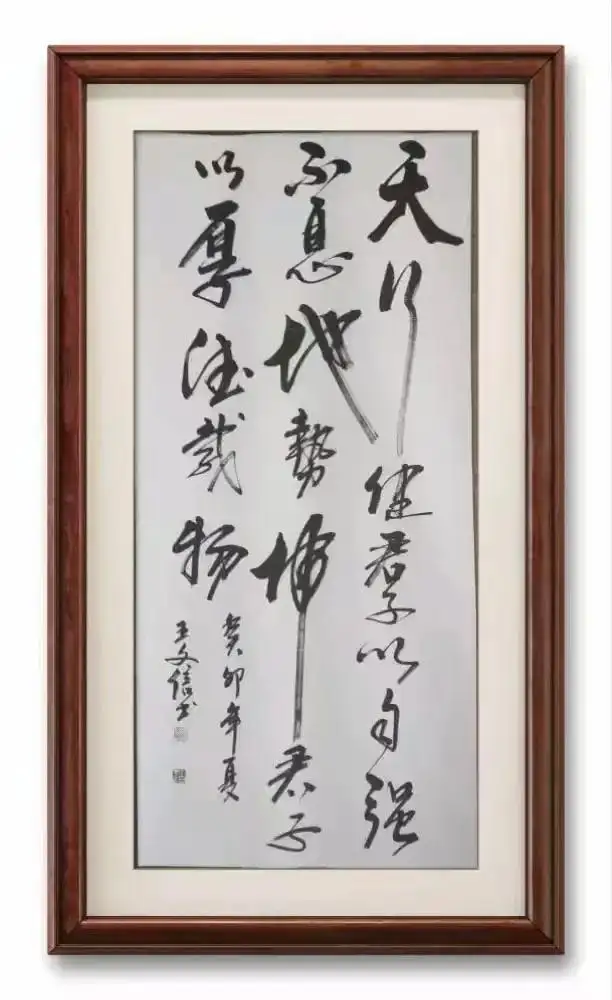 天行健君子以自强
不息地勢坤君子
以厚德载物
癸卯年夏
王文信书